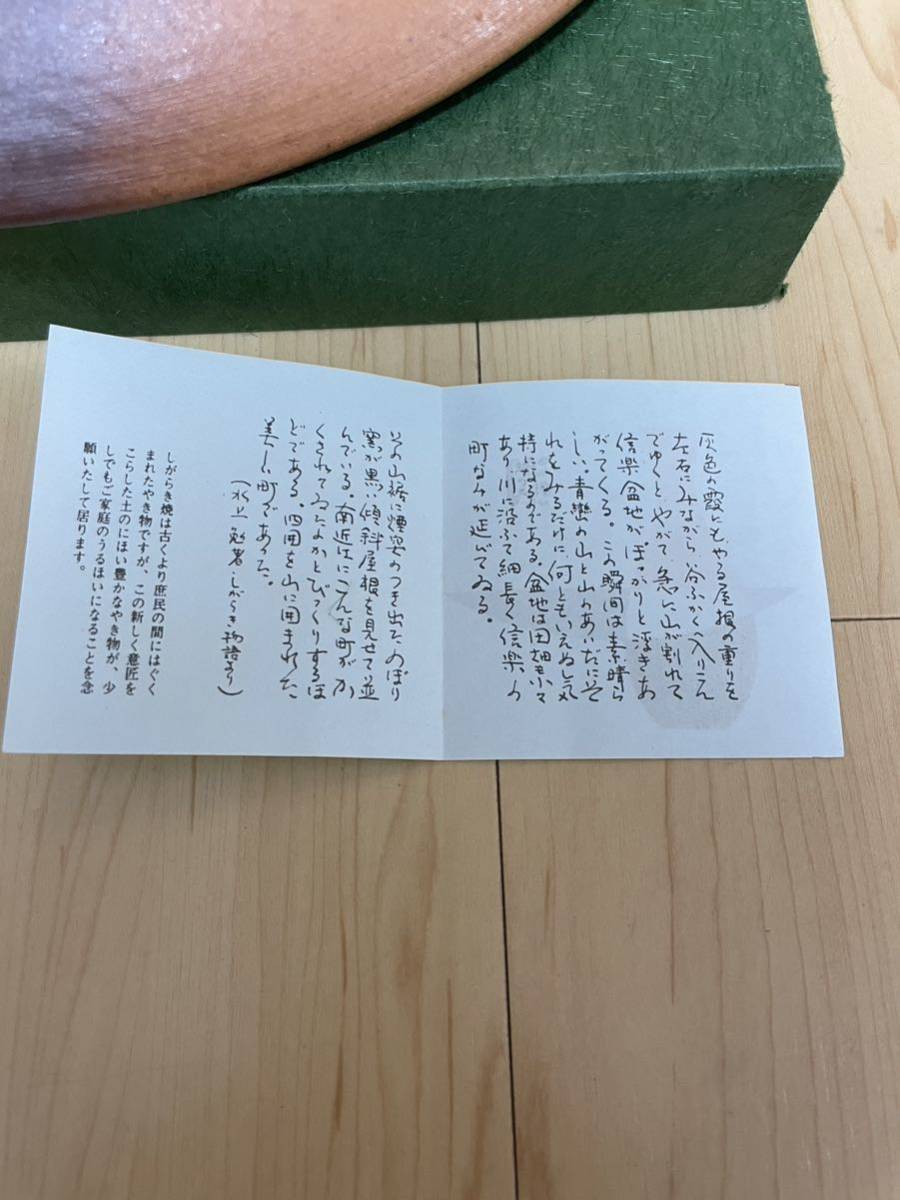 灰色の霞にもやる屋根の重りを
左右にみながら、谷ふかく入りこん
でゆくと、やがて、急に山が割れて
信楽盆地が、ぽっかりと浮きあ
がってくる。この瞬間は素晴ら
しい。青巒の山と山のあいだに
れをみるだけに、何ともいえぬ気
持になるのである。盆地は田畑も
あり川に沿ふて細長く信楽の
町なみが延びてゐる。
その山裾に煙突のつき出た、のぼり
窯が黒い傾斜屋根を見せて並
んでいる。南近江にこんな町がか
くされてゐたかとびっくりするほ
どである。四囲を山に囲まれた
美しい町であった。
(水上勉著・しがらき物語より)
しがらき焼は古くより庶民の間にはぐく
まれたやき物ですが、この新しく意匠を
こらした土のにほい豊かなやき物が、少
しでもご家庭のうるほいになることを念
願いたして居ります。